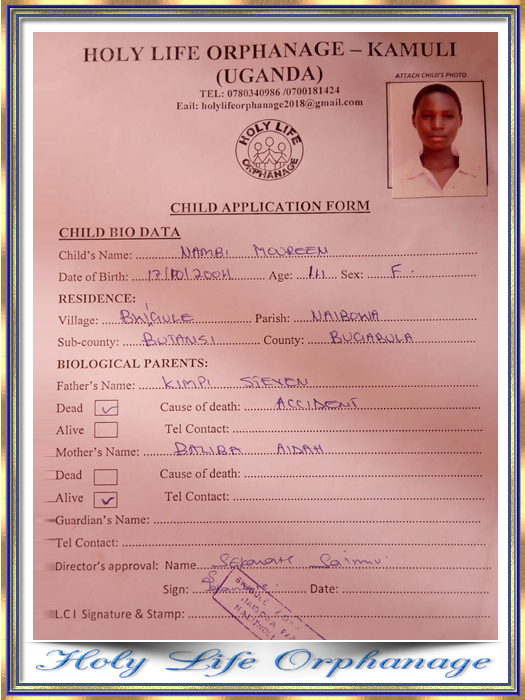 HOLY LIFE ORPHANAGE – KAMULI
(UGANDA)
TEL: 0780340986 /0700181424
Eail: holylifeorphanage2018@gmail.com
ATTACH CHILD'S PHOTO
HOLY LIFE
ORPHANAGE
CHILD APPLICATION FORM
CHILD BIO DATA
Child's Name: NAMBI MOUREEN
Date of Birth: 17/10/2004 Age: 14 Sex: F.
RESIDENCE:
Village: BWIGULE Parish: NAIBOWA
Sub-county: BUTANSI County: BUGABULA
BIOLOGICAL PARENTS:
Father's Name: KIMPI STEVEN
Dead ✓ Cause of death: ACCIDENT
Alive Tel Contact:
Mother's Name: BAZIBA AIDAH
Dead Cause of death:
Alive ✓ Tel Contact:
Guardian's Name:
Tel Contact:
Director's approval: Name
Sign: Date:
L.C I Signature & Stamp:
Holy Life Orphanage